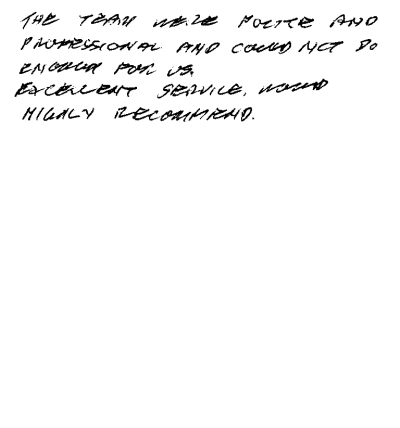 THE TEAM WERE POLITE AND
PROFESSIONAL AND COULD NOT DO
ENOUGH FOR US.
EXCELLENT SERVICE, WOULD
HIGHLY RECOMMEND.